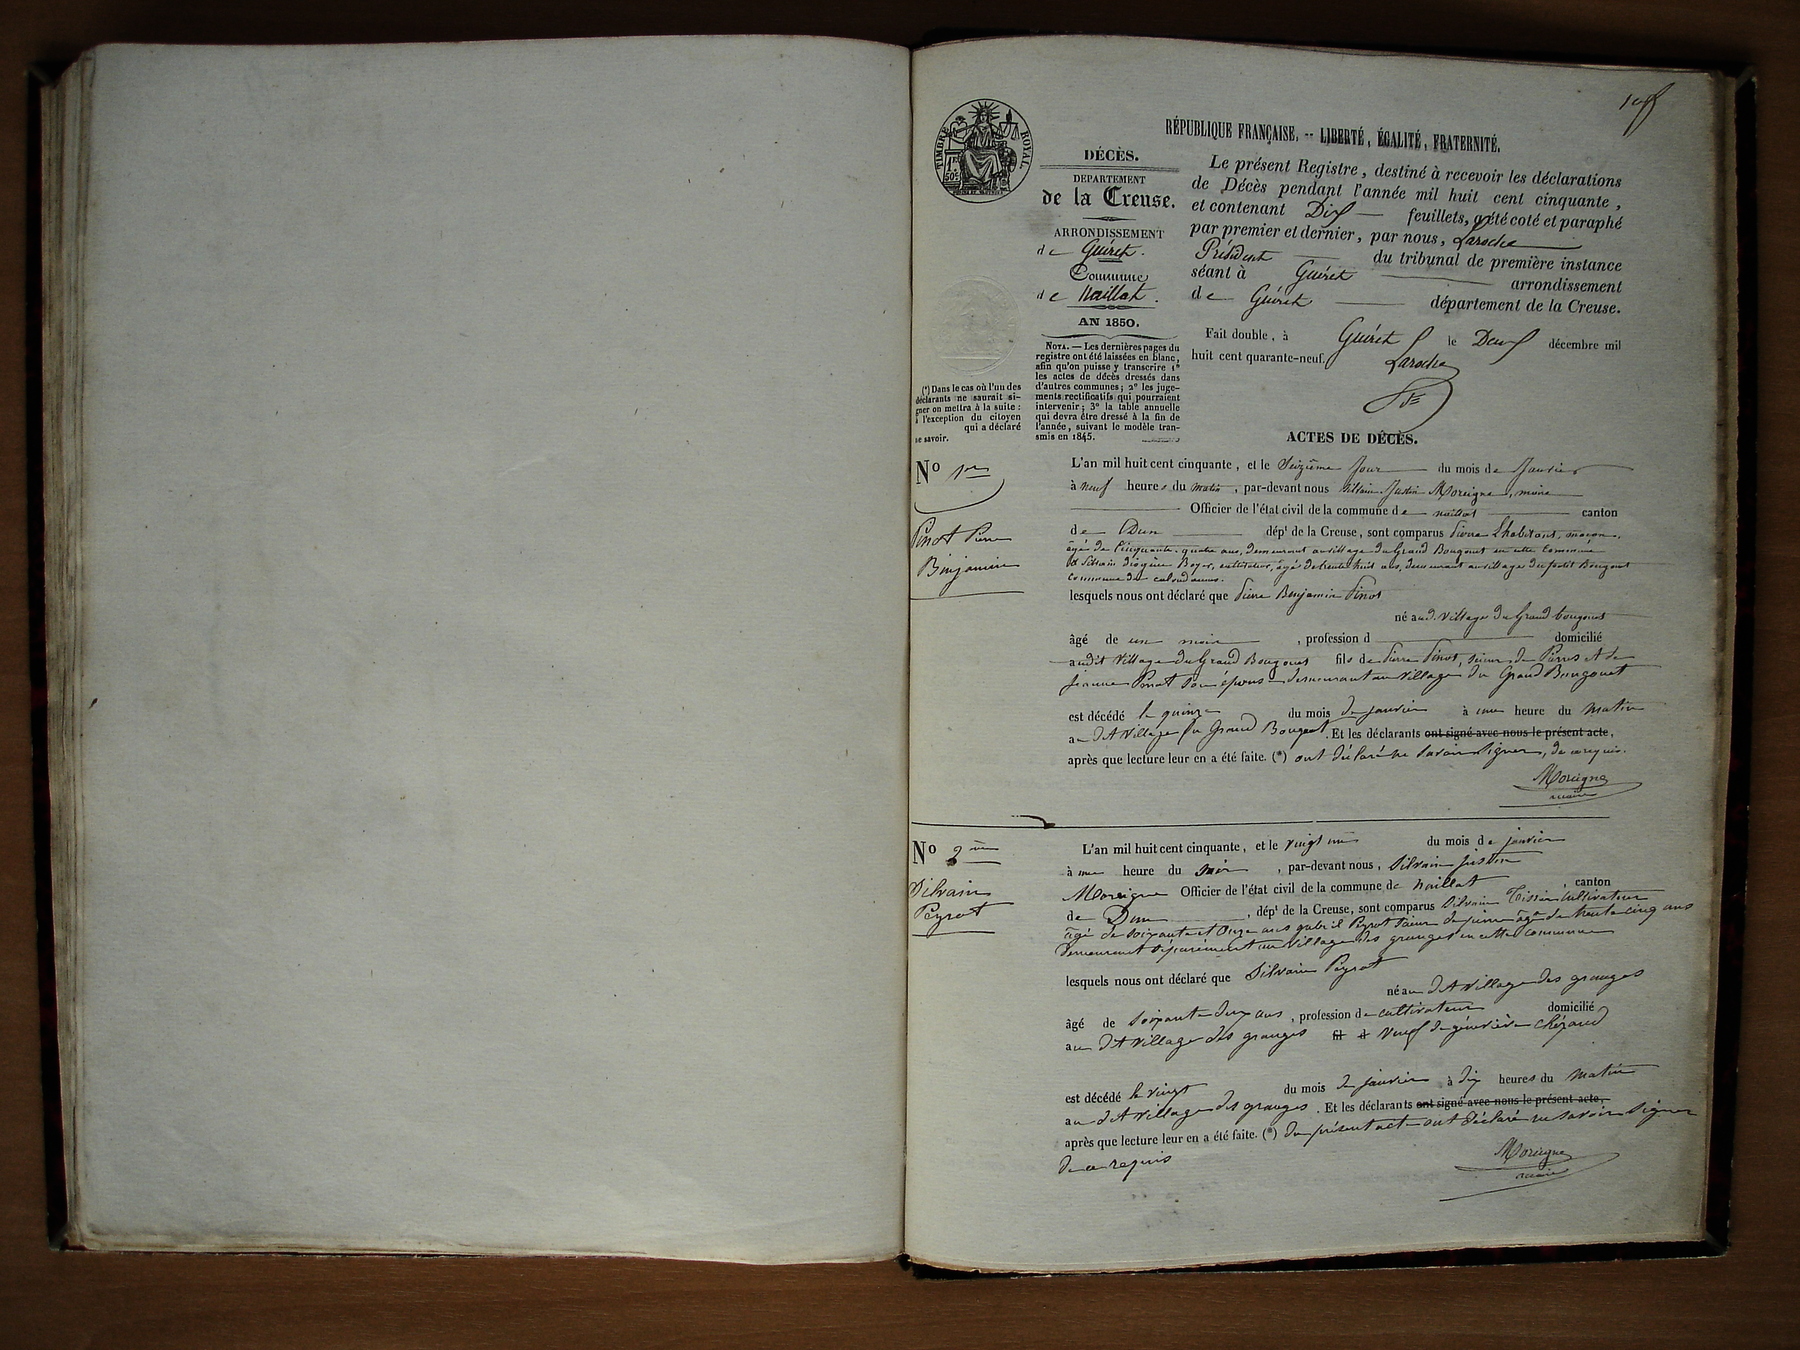 1er f
RÉPUBLIQUE FRANÇAISE. -- LIBERTÉ, ÉGALITÉ, FRATERNITÉ.
TIMBRE ROYAL
1F
50C
DÉCÈS.
DEPARTEMENT
de la Creuse.
ARRONDISSEMENT
de Guéret.
Commune
de Naillat.
AN 1850.
NOTA. — Les dernières pages du
registre ont été laissées en blanc,
afin qu'on puisse y transcrire 1°
les actes de décès dressés dans
d'autres communes; 2° les juge-
ments rectificatifs qui pourraient
intervenir; 3° la table annuelle
qui devra être dressé à la fin de
l'année, suivant le modèle tran-
smis en 1845.
(*) Dans le cas où l'un des
déclarants ne saurait si-
gner on mettra à la suite:
à l'exception du citoyen
qui a déclaré
ne savoir.
Le présent Registre, destiné à recevoir les déclarations
de Décès pendant l'année mil huit cent cinquante,
et contenant Dix feuillets, a été coté et paraphé
par premier et dernier, par nous, Laroche
Président du tribunal de première instance
séant à Guéret arrondissement
de Guéret département de la Creuse.
Fait double, à Guéret le Deux décembre mil
huit cent quarante-neuf.
Laroche
ACTES DE DÉCÈS.
No 1er
Pinot Pierre
Binjamin
L'an mil huit cent cinquante, et le Seizième jour du mois de Janvier
à neuf heures du matin, par-devant nous Silvain Justin Moreigne, maire
Officier de l'état civil de la commune de naillat canton
de Dun dépt de la Creuse, sont comparus Pierre Lhabitant, maçon,
âgé de Cinquante-quatre ans, demeurant au village du Grand Bougouet en cette Commune
et Silvain Boyer, cultivateur, âgé de trente huit ans, demeurant au village du petit Bougouet
Commune de
lesquels nous ont déclaré que Pierre Benjamin Pinot
né aud. village du Grand bougouet
âgé de un mois, profession d domicilié
audit Village du Grand Bougouet fils de Pierre Pinot, scieur de Pierres et de
jeanne Pinot son épouse demeurant au Village du Grand Bougouet
est décédé le quinze du mois de janvier à une heure du Matin
au dit Village du Grand Bougouet. Et les déclarants ont signé avec nous le présent acte,
après que lecture leur en a été faite. (*) ont déclaré ne savoir signer, de ce requis.
Moreigne
maire
No 2ème
Silvain
Peyrot
L'an mil huit cent cinquante, et le vingt un du mois de janvier
à une heure du soir, par-devant nous, Silvain justin
Moreigne Officier de l'état civil de la commune de naillat, canton
de Dun, dépt de la Creuse, sont comparus Silvain Tissier Cultivateur
âgé de soixante et Onze ans gabriel Peyrot scieur de pierre âgé de trente cinq ans
demeurant séparément au village des granges en cette commune
lesquels nous ont déclaré que Silvain Peyrot
né au dit Village des granges
âgé de soixante deux ans, profession de cultivateur domicilié
au dit village des granges fil d Veuf de génévière
est décédé le vingt du mois de janvier à dix heures du Matin
au dit village des granges. Et les déclarants ont signé avec nous le présent acte,
après que lecture leur en a été faite. (*) du présent acte ont déclaré ne savoir signer
de ce requis
Moreigne
maire